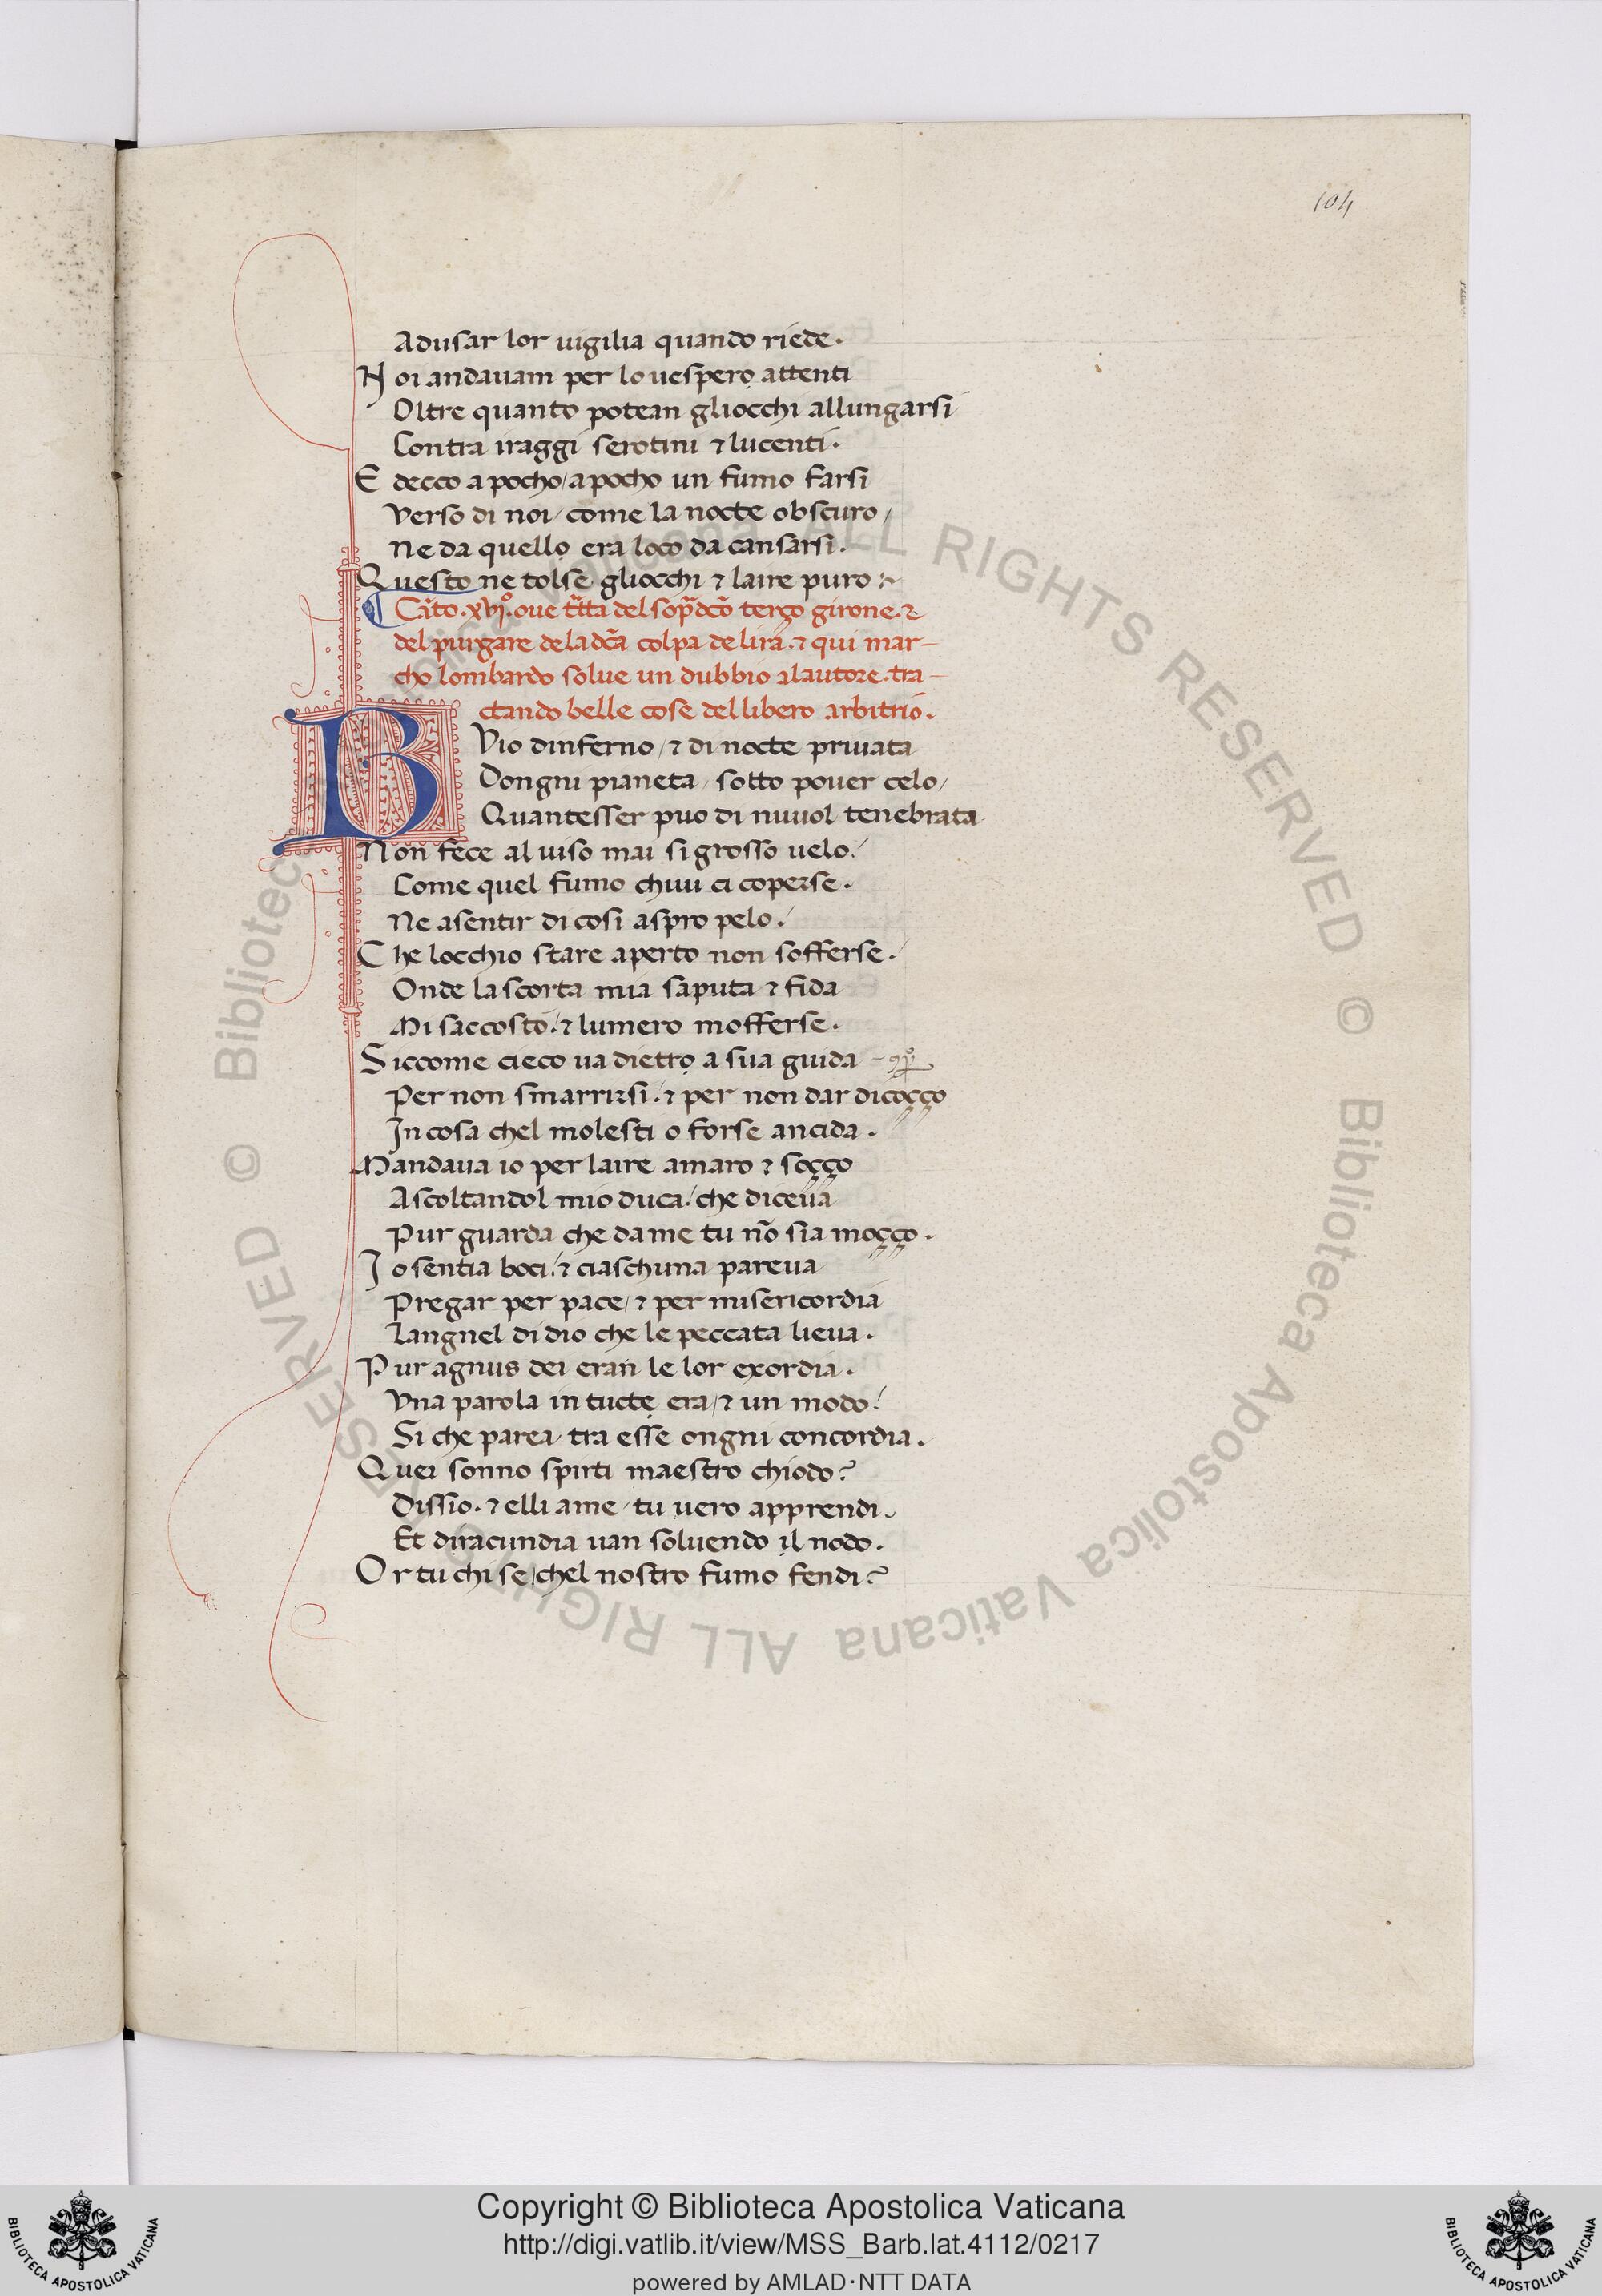 104
Adusar lor uigilia quando riede.
Noi andauam per lo uespero attenti
Oltre quanto potean gliocchi allungarsi
Contra iraggi serotini ⁊ lucenti.
E decco a pocho/a pocho un fumo farsi
Verso di noi/ come la nocte obscuro/
Ne da quello era loco da cansarsi.
Questo ne tolse gliocchi ⁊ laire puro:~
¶ Cāto.xvjº.oue t̄tta del sop̄dc̄o terço girone.⁊
del purgare de la dc̄a colpa de lira.⁊ qui mar-
cho lombardo solue un dubbio alautore.tra-
ctando belle cose del libero arbitrio.
BVio dinferno/⁊ di nocte priuata
Dongni pianeta/ sotto pouer celo/
Quantesser puo di nuuol tenebrata
Non fece al uiso mai si grosso uelo/
Come quel fumo chiui ci coperse.
Ne asentir di cosi aspro pelo/
Che locchio stare aperto non sofferse.
Onde la scorta mia saputa ⁊ fida
Mi saccosto.⁊ lumero mofferse.
Siccome cieco ua dietro a sua guida
Per non smarrirsi.⁊ per non dar dicoçço
In cosa chel molesti o forse ancida.
Mandaua io per laire amaro ⁊ soçço
Ascoltandol mio duca/ che diceua
Pur guarda che da me tu nō sia moçço.
Io sentia boci.⁊ ciaschuna pareua
Pregar per pace/⁊ per misericordia
Langnel di dio che le peccata lieua.
Pur agnus dei eran le lor exordia.
Vna parola in tucte era/⁊ un modo/
Si che parea tra esse ongni concordia.
Quei sonno spirti maestro chiodo?
Dissio.⁊ elli ame/tu uero apprendi.
Et diracundia uan soluendo il nodo.
Or tu chi se/chel nostro fumo fendi?
© Biblioteca Apostolica Vaticana ALL RIGHTS RESERVED © Biblioteca Apostolica Vaticana ALL RIGHTS RESERVED
Copyright © Biblioteca Apostolica Vaticana
http://digi.vatlib.it/view/MSS_Barb.lat.4112/0217
powered by AMLAD·NTT DATA
BIBLIOTECA APOSTOLICA VATICANA
BIBLIOTECA APOSTOLICA VATICANA